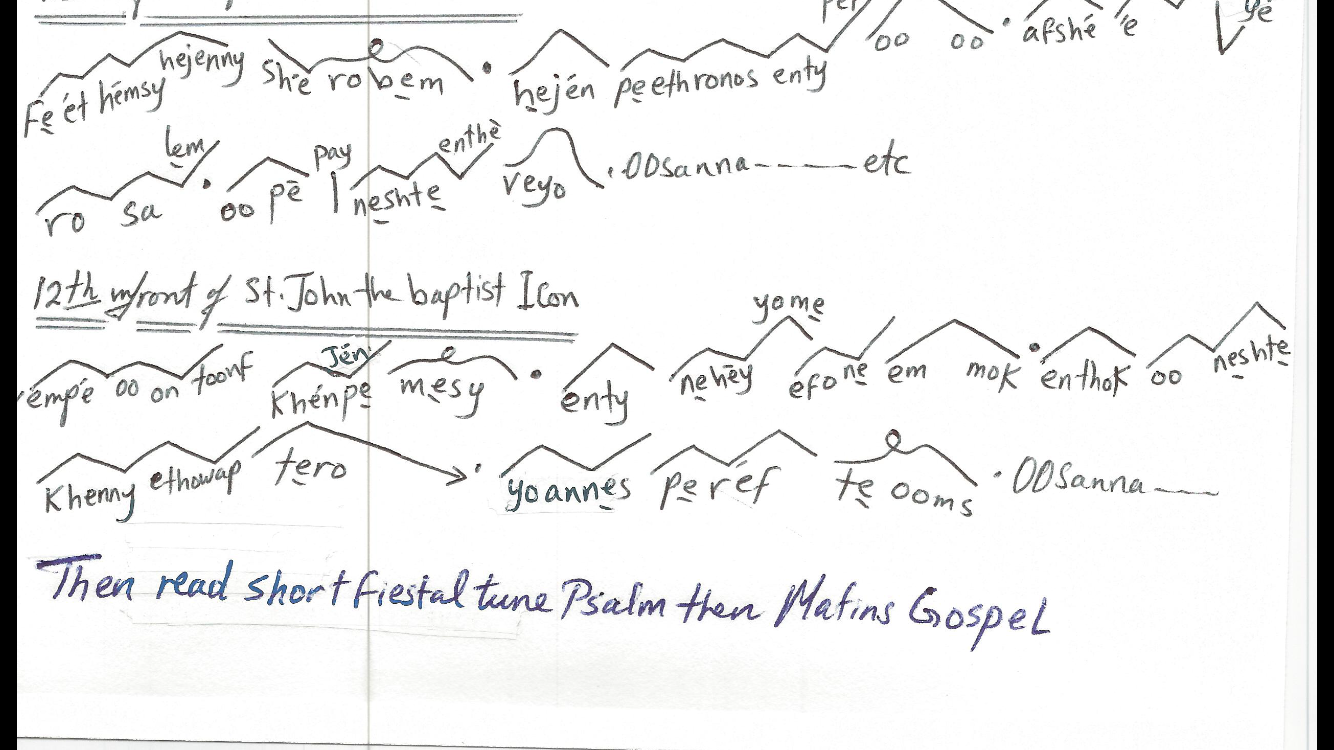 oo oo . afshé 'e yé
Fe ét hémsy hejenny She ro bem . hején peethronos enty per
ro sa lem . oo pē pay neshte enthè veyo . OOsanna------etc
12th in front of St. John the baptist Icon
empé oo on toonf Khénpe Jén mesy . enty nehēy yome efone em mok . enthok oo neshte
Khenny ethowap tero . yoannes peréf te ooms . OOsanna----
Then read short fiestal tune Psalm then Matins Gospel